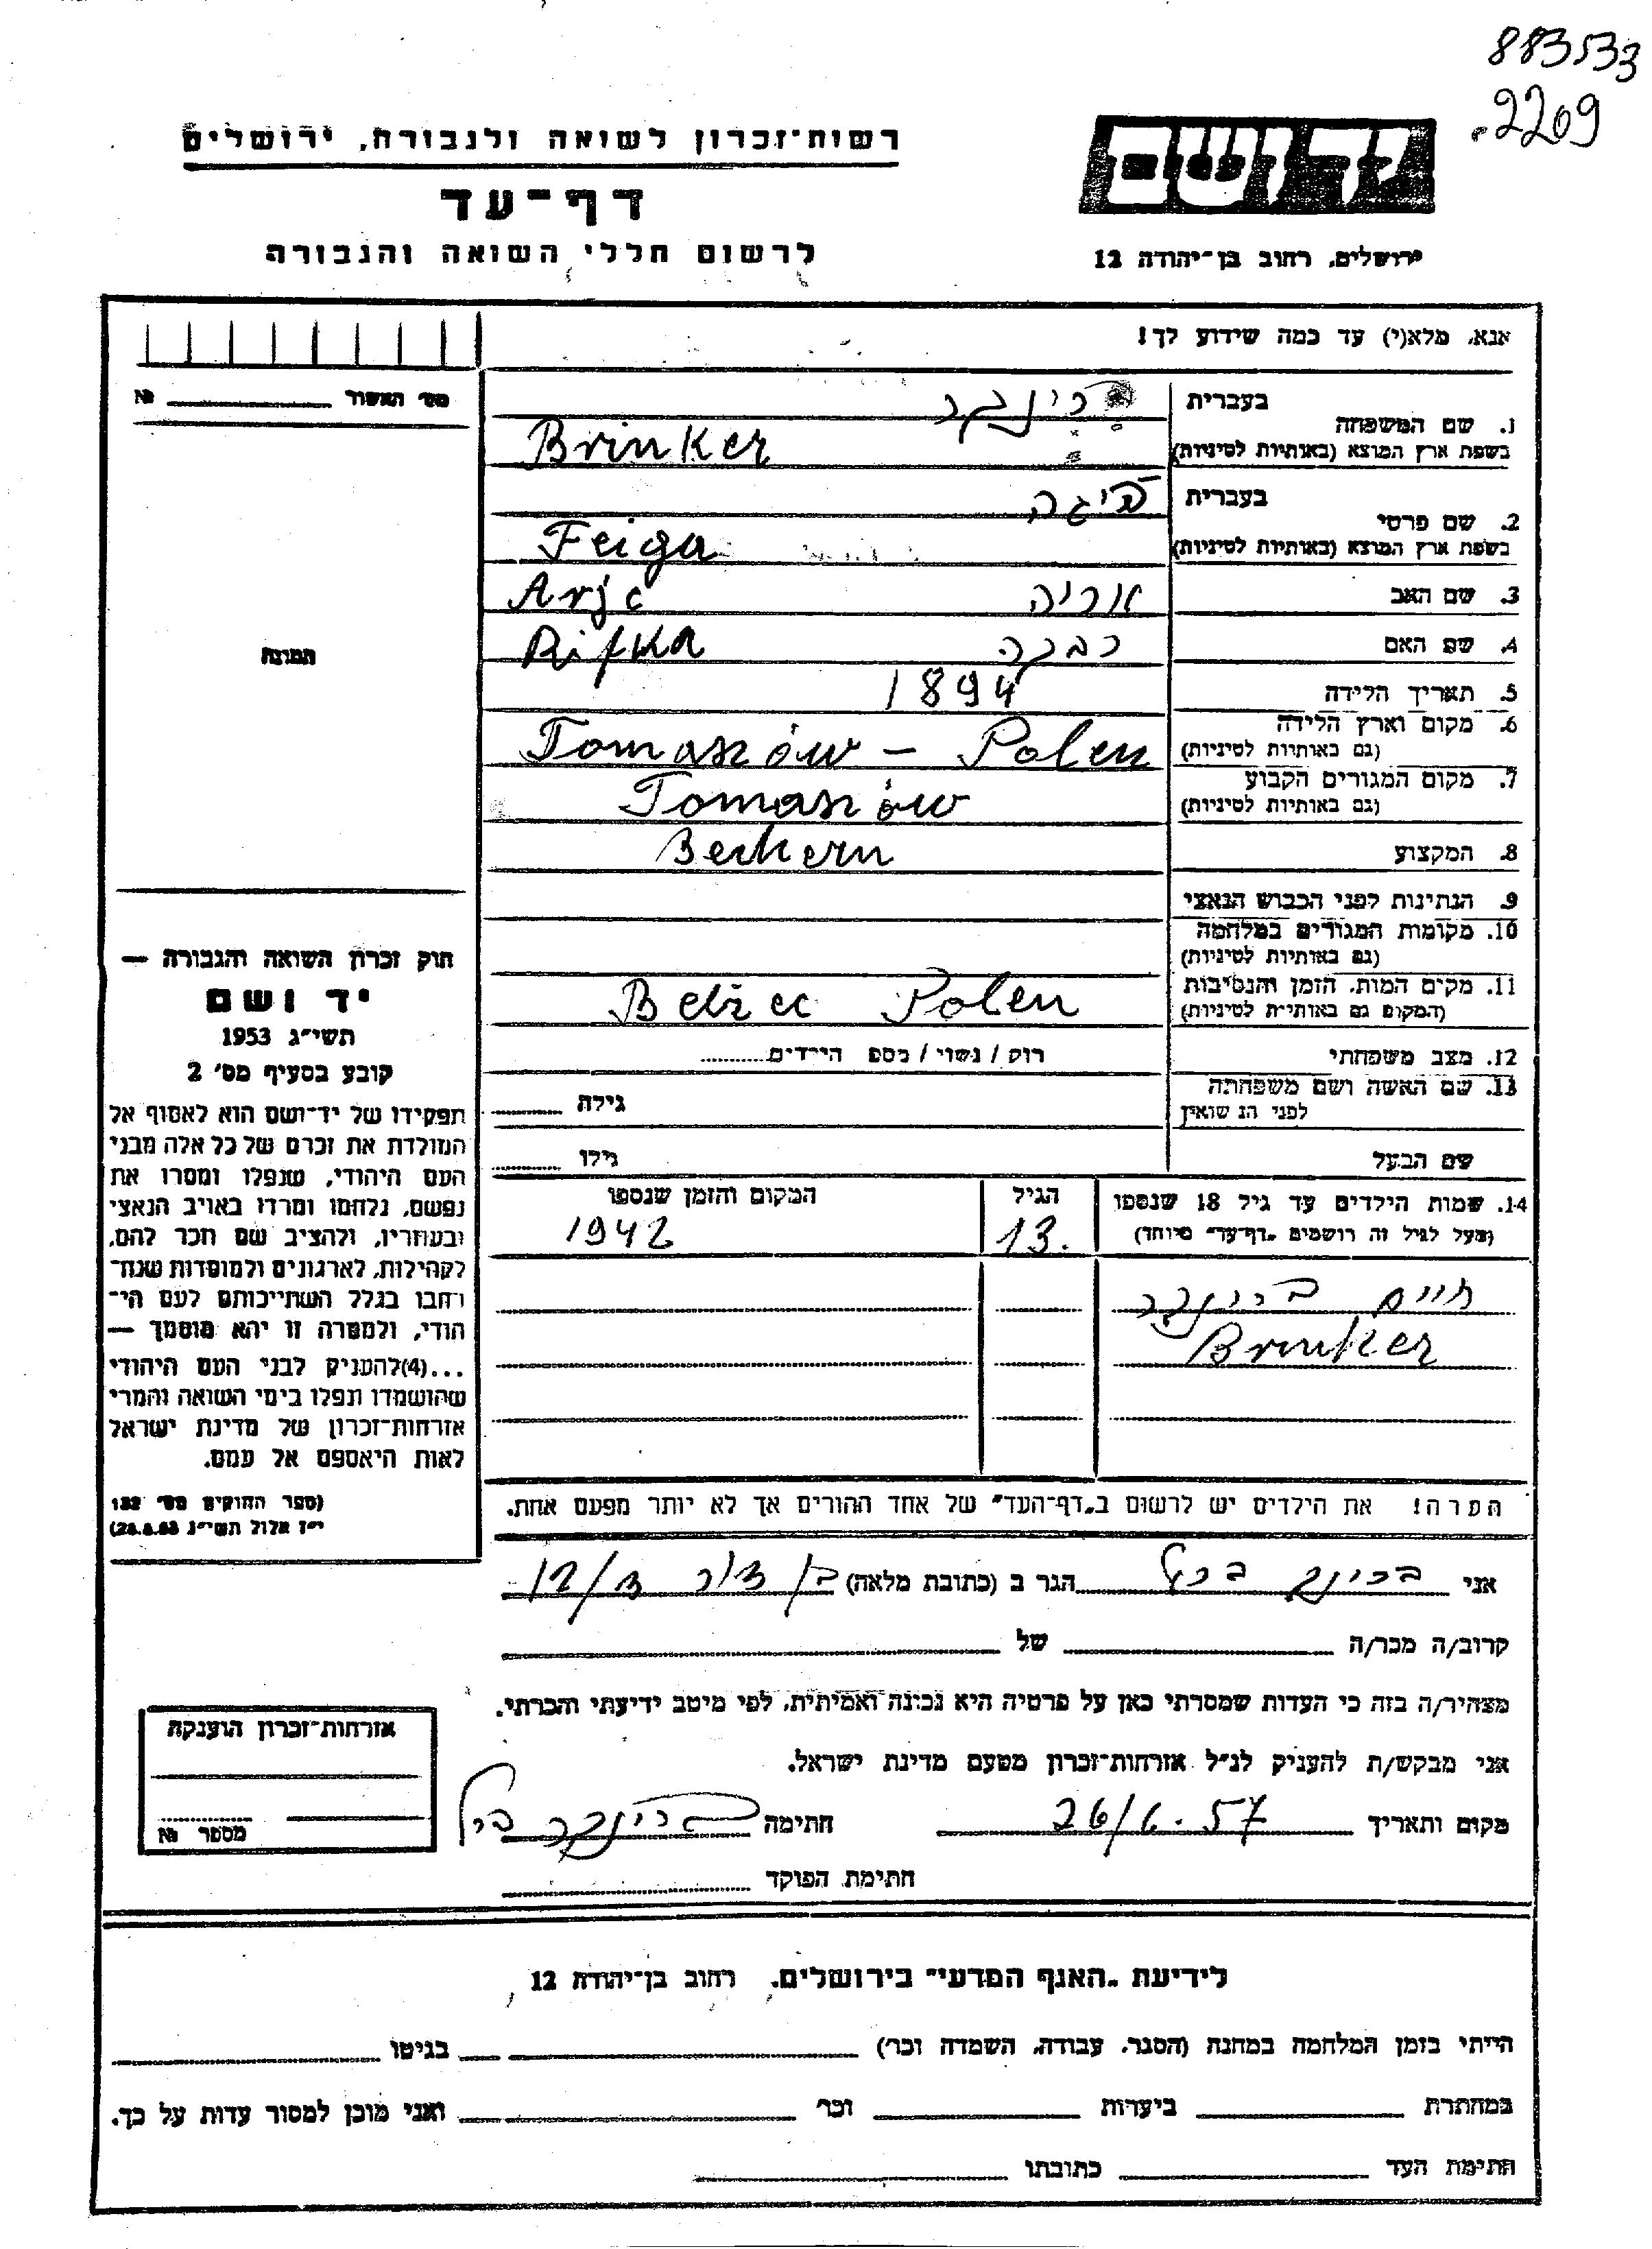 883533
2209
רשות־זכרון לשואה ולגבורה, ירושלים
יד ושם
דף־עד
לרשום חללי השואה והגבורה
ירושלים, רחוב בן־יהודה 12
אנא, מלא(י) עד כמה שידוע לך!
מס׳ האשור № 
1. שם המשפחה
בעברית ברינקר
בשפת ארץ המוצא (באותיות לטיניות) Brinker
2. שם פרטי
בעברית פיגה
בשפת ארץ המוצא (באותיות לטיניות) Feiga
3. שם האב אריה Arje
4. שם האם רבקה Rifka
תמונה
5. תאריך הלידה 1894
6. מקום וארץ הלידה (גם באותיות לטיניות) Tomaszów - Polen
7. מקום המגורים הקבוע (גם באותיות לטיניות) Tomaszów
8. המקצוע
9. הנתינות לפני הכבוש הנאצי
10. מקומות המגורים במלחמה (גם באותיות לטיניות)
11. מקום המות, הזמן והנסיבות (המקום גם באותיות לטיניות) Bełżec Polen
12. מצב משפחתי רווק / נשוי / מספר הילדים
13. שם האשה ושם משפחתה לפני הנשואין גילה
שם הבעל גילו
14. שמות הילדים עד גיל 18 שנספו (מעל לגיל זה רושמים "דף־עד" מיוחד) הגיל המקום והזמן שנספו
13. 1942
חיים ברינקר
Brinker
חוק זכרון השואה והגבורה —
יד ושם
תשי״ג 1953
קובע בסעיף מס׳ 2
תפקידו של יד־ושם הוא לאסוף אל
המולדת את זכרם של כל אלה מבני
העם היהודי, שנפלו ומסרו את
נפשם, נלחמו ומרדו באויב הנאצי
ובעוזריו, ולהציב שם וזכר להם,
לקהילות, לארגונים ולמוסדות שנח־
רבו בגלל השתייכותם לעם הי־
הודי, ולמטרה זו יהא מוסמך —
...(4)להעניק לבני העם היהודי
שהושמדו ונפלו בימי השואה והמרי
אזרחות־זכרון של מדינת ישראל
לאות היאספם אל עמם.
(ספר החוקים מס׳ 132
י״ז אלול תשי״ג 28.8.53)
הערה! את הילדים יש לרשום ב"דף־העד" של אחד ההורים אך לא יותר מפעם אחת.
אני ברינקר הגר ב (כתובת מלאה)
קרוב/ה מכר/ה של
מצהיר/ה בזה כי העדות שמסרתי כאן על פרטיה היא נכונה ואמיתית, לפי מיטב ידיעתי והכרתי.
אני מבקש/ת להעניק לנ״ל אזרחות־זכרון מטעם מדינת ישראל.
מקום ותאריך 26/6.57 חתימה ברינקר
חתימת הפוקד
אזרחות־זכרון הוענקה
מספר №
לידיעת "האגף המדעי" בירושלים, רחוב בן־יהודה 12
הייתי בזמן המלחמה במחנה (הסגר, עבודה, השמדה וכו׳) בגיטו
במחתרת ביערות וכו׳ ואני מוכן למסור עדות על כך.
חתימת העד כתובתו